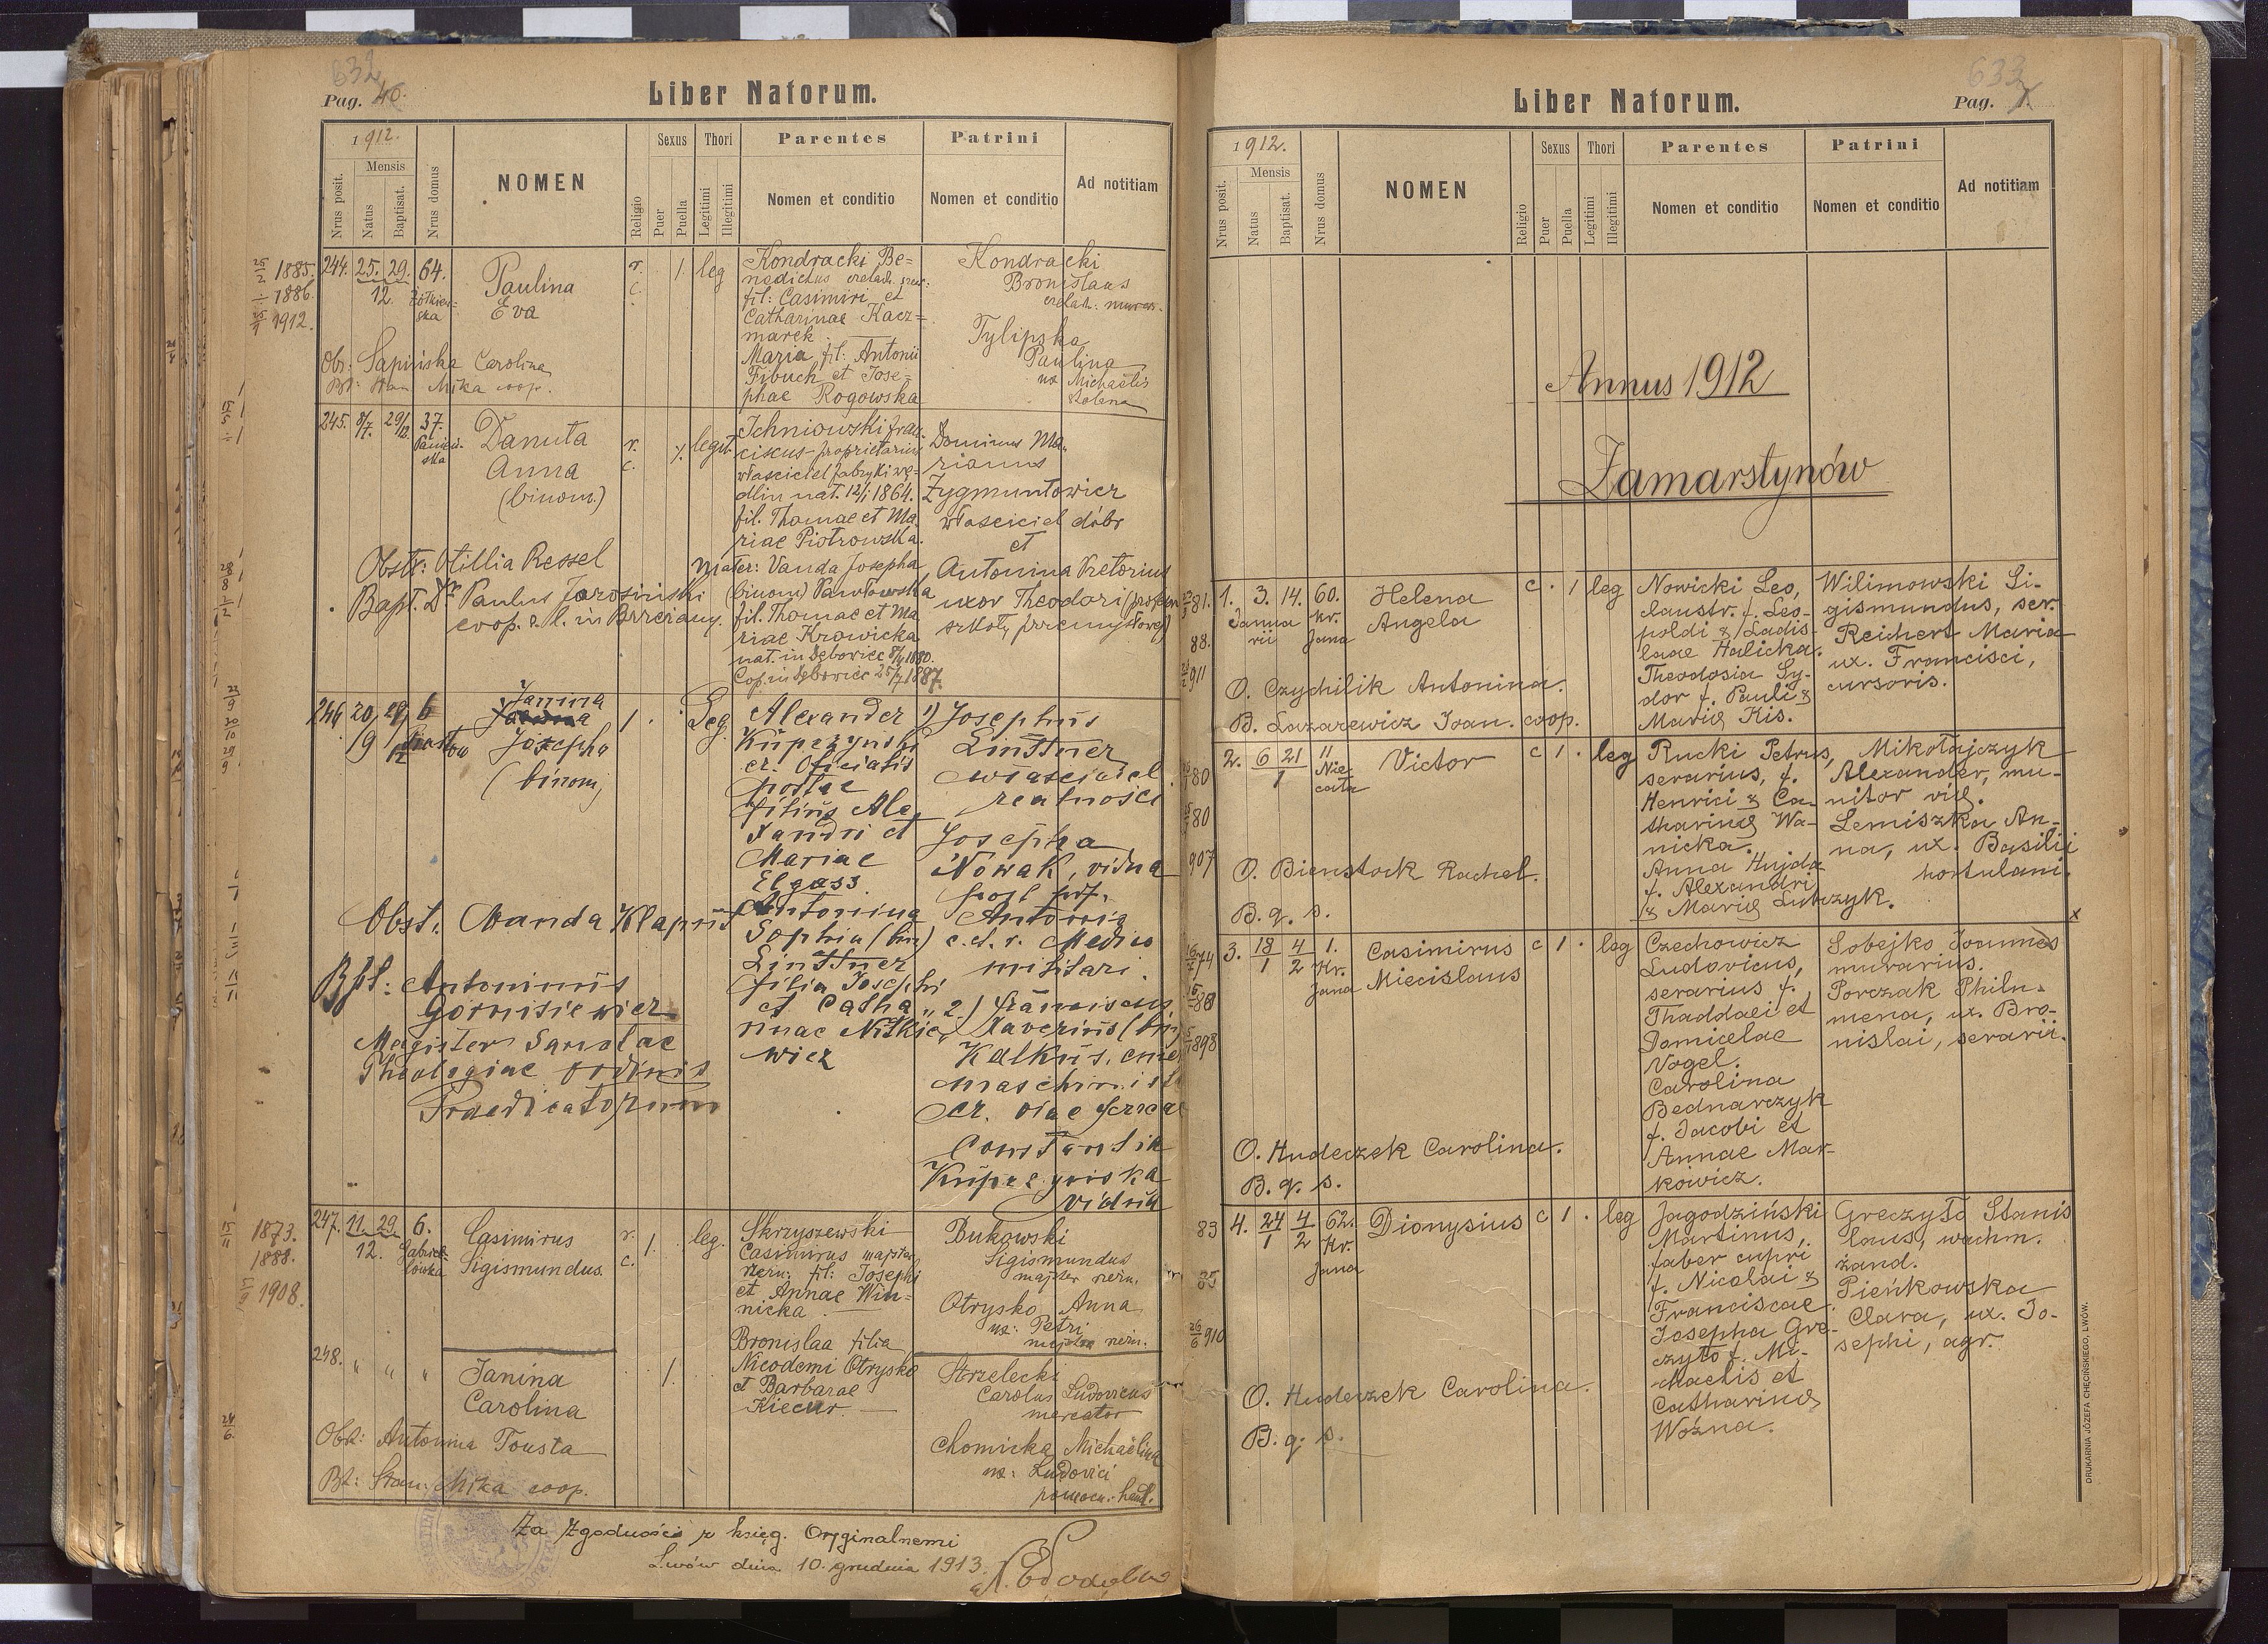 632
Pag. 46.
Liber Natorum.
1912.
Nrus posit.
Mensis
Natus
Baptisat.
Nrus domus
NOMEN
Religio
Sexus
Puer
Puella
Thori
Legitimi
Illegitimi
Parentes
Nomen et conditio
Patrini
Nomen et conditio
Ad notitiam
1885.
1886.
1912.
244. 25. 29. 64.
12.
Paulina
Eva
r.
c.
1. leg
Kondracki Be=
nedictus
fil: Casimiri et
Catharinae Kacz=
marek.
Maria fil: Antonii
Fibuch et Jose=
phae Rogowska
Kondracki
Bronislaus
czelad: murar.
Tylipska
Paulina
ux Michaelis
Obs: Sapińska Carolina
Bt: Stan Mika coop.
245. 8/7. 29/12. 37.
Danuta
Anna
(binom.)
r.
c.
1. legit.
Ichniowski Fran
ciscus proprietarius
właściciel fabryki wę=
dlin nat. 12/1 1864.
fil. Thomae et Ma
riae Piotrowska.
Mater: Vanda Josepha
(binom) Pawłowska
fil. Thomae et Ma
riae Krowicka
nat. in Dębowiec 8/4 1880.
Cop. in Dębowiec 25/7 1887.
Dominus Ma
rianus
Zygmuntowicz
właściciel dóbr
et
Antonina Pretorius
uxor Theodori (profesor
szkoły przemysłowej)
Obst: Otillia Ressel
Bapt. Dr Paulus Jarosiński
coop. r. l. in Brzeżany.
246. 20/9 29/12 6
Janina
Josepha
(binom)
1. Leg
Alexander
Kupczyński
cr. Oficialis
postae
filius Ale
xandri et
Mariae
Elgass.
Antonina
Sophia (bin)
Linttner
filia Josephi
et Catha
rinae Nitkie
wicz
1) Josephus
Linttner
właściciel
realności
Josepha
Nowak, vidua
post
c. et. r. Medico
militari.
2.) Franciscus
Xaverius (bin)
Kalkus, emer
maschinista
cr. viae ferreae
Constantia
Kupczyńska
vidua
Obst. Wanda Klaput
Bpt: Antoninus
Górnisiewicz
Magister Sanctae
Theologiae Ordinis
Praedicatorum
1873.
1888.
1908.
247. 11. 29. 6.
12.
Casimirus
Sigismundus.
r.
c.
1. leg.
Skrzyszewski
Casimirus majster
rzeźn: fil: Josephi
et Annae Win=
nicka.
Bronislaa filia
Nicodemi Otrysko
et Barbarae
Kiecur.
Bukowski
Sigismundus
majster rzeźn.
Otrysko Anna
ux: Petri
majstra rzeźn.
248. " " "
Janina
Carolina
1.
Strzelecki
Carolus Ludovicus
mercator
Chomicka Michaëlina
ux: Ludovici
pomocn: handl.
Obst: Antonina Tousta
Bt: Stan: Mika coop.
Za zgodność z księg. Oryginalnemi
Lwów dnia 10. grudnia 1913.
633
Pag. 1.
Liber Natorum.
1912.
Nrus posit.
Mensis
Natus
Baptisat.
Nrus domus
NOMEN
Religio
Sexus
Puer
Puella
Thori
Legitimi
Illegitimi
Parentes
Nomen et conditio
Patrini
Nomen et conditio
Ad notitiam
Annus 1912
Zamarstynów
81.
88.
911
1. 3. 14. 60.
Janua
rii
kr.
Jana
Helena
Angela
c . 1 leg
Nowicki Leo,
claustr. f. Leo-
poldi & Ladis-
laae Halicka.
Theodosia Sy-
dor f. Pauli &
Mariæ Kis.
Wilimowski Si-
gismundus, ser.
Reichert Maria
ux. Francisci,
cursoris.
O. Czychilik Antonina.
B. Lazarewicz Joan. coop.
80
80
907
2. 6 21 11
1
Nie
cała
Victor
c 1 . leg
Rucki Petrus,
serarius, f.
Henrici & Ca-
tharinæ Wa-
nicka.
Anna Hujda
f. Alexandri
& Mariæ Lubczyk.
Mikołajczyk
Alexander, mu-
nitor viæ.
Lemiszka An-
na, ux. Basilii
hortulani.
O. Bienstock Rachel.
B. q. s.
x
74
88
898
3. 18/1 4/2 1.
Kr.
Jana
Casimirus
Miecislaus
c 1 . leg
Czechowicz
Ludovicus,
serarius f.
Thaddaei et
Domicelae
Vogel.
Carolina
Bednarczyk
f. Jacobi et
Annae Mar-
kowicz.
Sobejko Joannes
murarius.
Porczak Philu-
mena, ux. Bro-
nislai, serarii.
O. Hudeczek Carolina.
B. q. s.
83
85
26/6 910
4. 24/1 4/2 62.
Kr.
Jana
Dionysius
c 1 . leg
Jagodziński
Martinus,
faber cupri
f. Nicolai &
Franciscae.
Josepha Gre-
czyło f. Mi-
chaelis et
Catharinæ
Woźna.
Greczyło Stanis
laus, wachm.
żand.
Pieńkowska
Clara, ux. Jo-
sephi, agr.
O. Hudeczek Carolina.
B. q. s.
DRUKARNIA JÓZEFA CHĘCIŃSKIEGO, LWÓW.